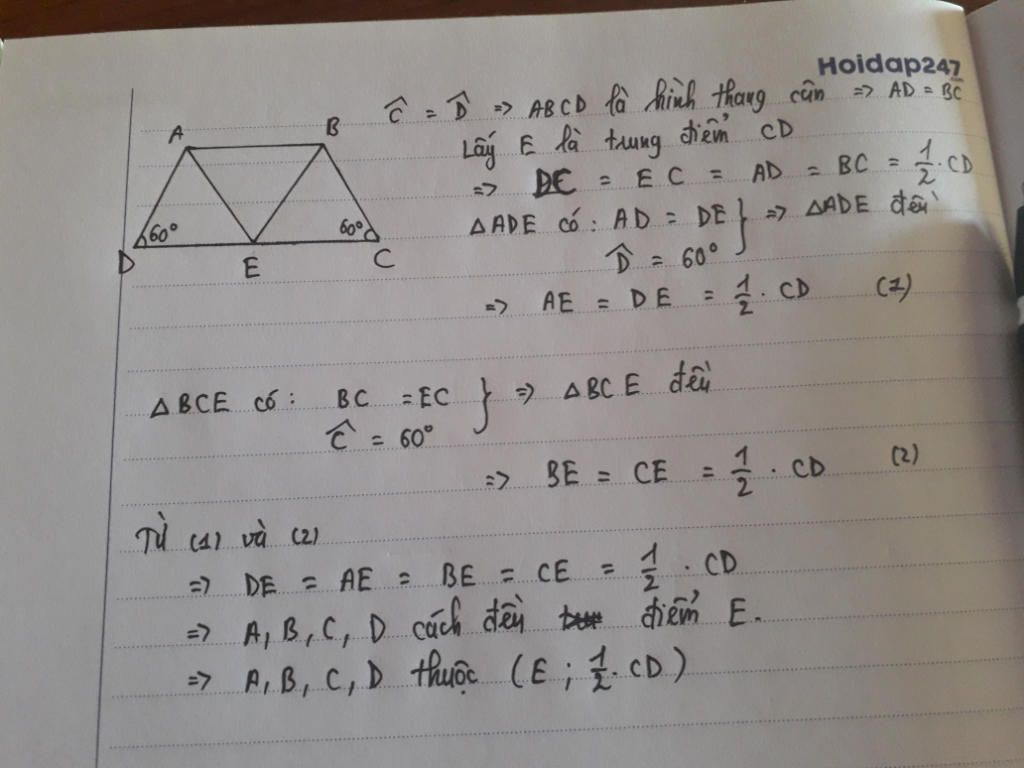 Hoidap247
A
B
60°
60°
D
E
C
Ĉ = D̂ => ABCD là hình thang cân => AD = BC
Lấy E là trung điểm CD
=> DE = EC = AD = BC = 1/2 . CD
△ADE có: AD = DE } => △ADE đều
D̂ = 60°
=> AE = DE = 1/2 . CD (1)
△BCE có: BC = EC } => △BCE đều
Ĉ = 60°
=> BE = CE = 1/2 . CD (2)
Từ (1) và (2)
=> DE = AE = BE = CE = 1/2 . CD
=> A, B, C, D cách đều điểm E.
=> A, B, C, D thuộc (E ; 1/2 . CD)